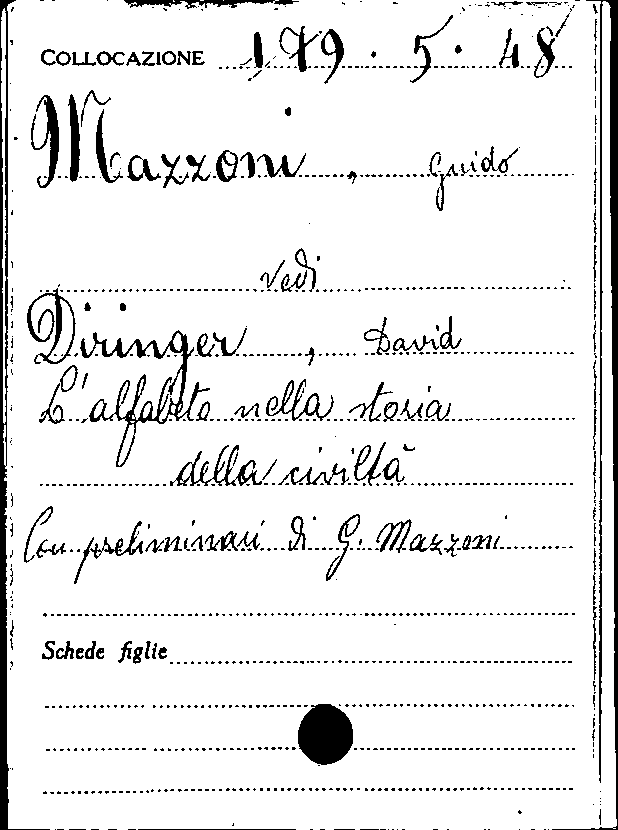 COLLOCAZIONE 179.5.48
Mazzoni, Guido
vedi
Diringer, David
L'alfabeto nella storia
della civiltà
Con preliminari di G. Mazzoni
Schede figlie